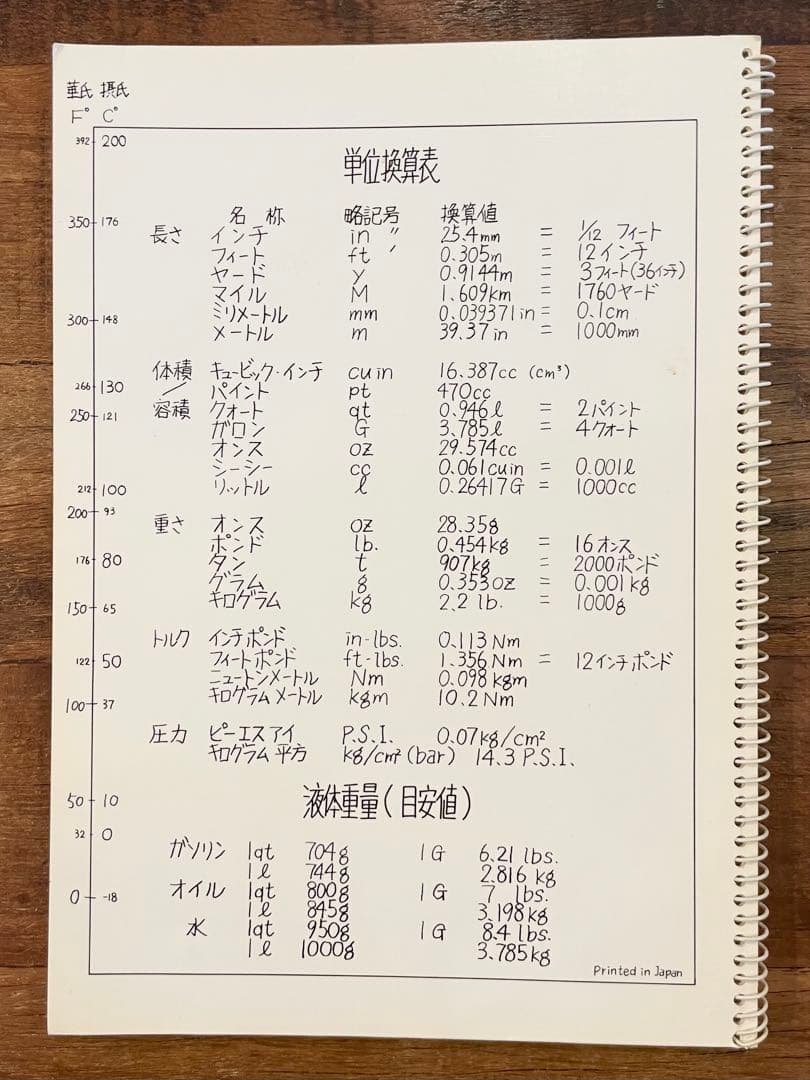 華氏 摂氏
F° C°
392 200
単位換算表
350 176
名称 略記号 換算値
長さ インチ in 〃 25.4mm = 1/12 フィート
フィート ft ′ 0.305m = 12インチ
ヤード y 0.9144m = 3フィート(36インチ)
マイル M 1.609km = 1760ヤード
ミリメートル mm 0.039371in = 0.1cm
300 148
メートル m 39.37in = 1000mm
体積 キュービック・インチ cuin 16.387cc (cm³)
266 130
／ パイント pt 470cc
250 121
容積 クォート qt 0.946ℓ = 2パイント
ガロン G 3.785ℓ = 4クォート
オンス oz 29.574cc
シーシー cc 0.061cuin = 0.001ℓ
212 100
リットル ℓ 0.26417G = 1000cc
200 93
重さ オンス oz 28.35g
ポンド lb. 0.454kg = 16オンス
176 80
タン t 907kg = 2000ポンド
グラム g 0.353oz = 0.001kg
150 65
キログラム kg 2.2 lb. = 1000g
トルク インチポンド in-lbs. 0.113Nm
122 50
フィートポンド ft-lbs. 1.356Nm = 12インチポンド
ニュートンメートル Nm 0.098kgm
100 37
キログラムメートル kgm 10.2Nm
圧力 ピーエスアイ P.S.I. 0.07kg/cm²
キログラム平方 kg/cm²(bar) 14.3 P.S.I.
50 10
液体重量(目安値)
32 0
ガソリン 1qt 704g 1G 6.21 lbs.
1ℓ 744g 2.816 kg
0 -18
オイル 1qt 800g 1G 7 lbs.
1ℓ 845g 3.198kg
水 1qt 950g 1G 8.4 lbs.
1ℓ 1000g 3.785kg
Printed in Japan